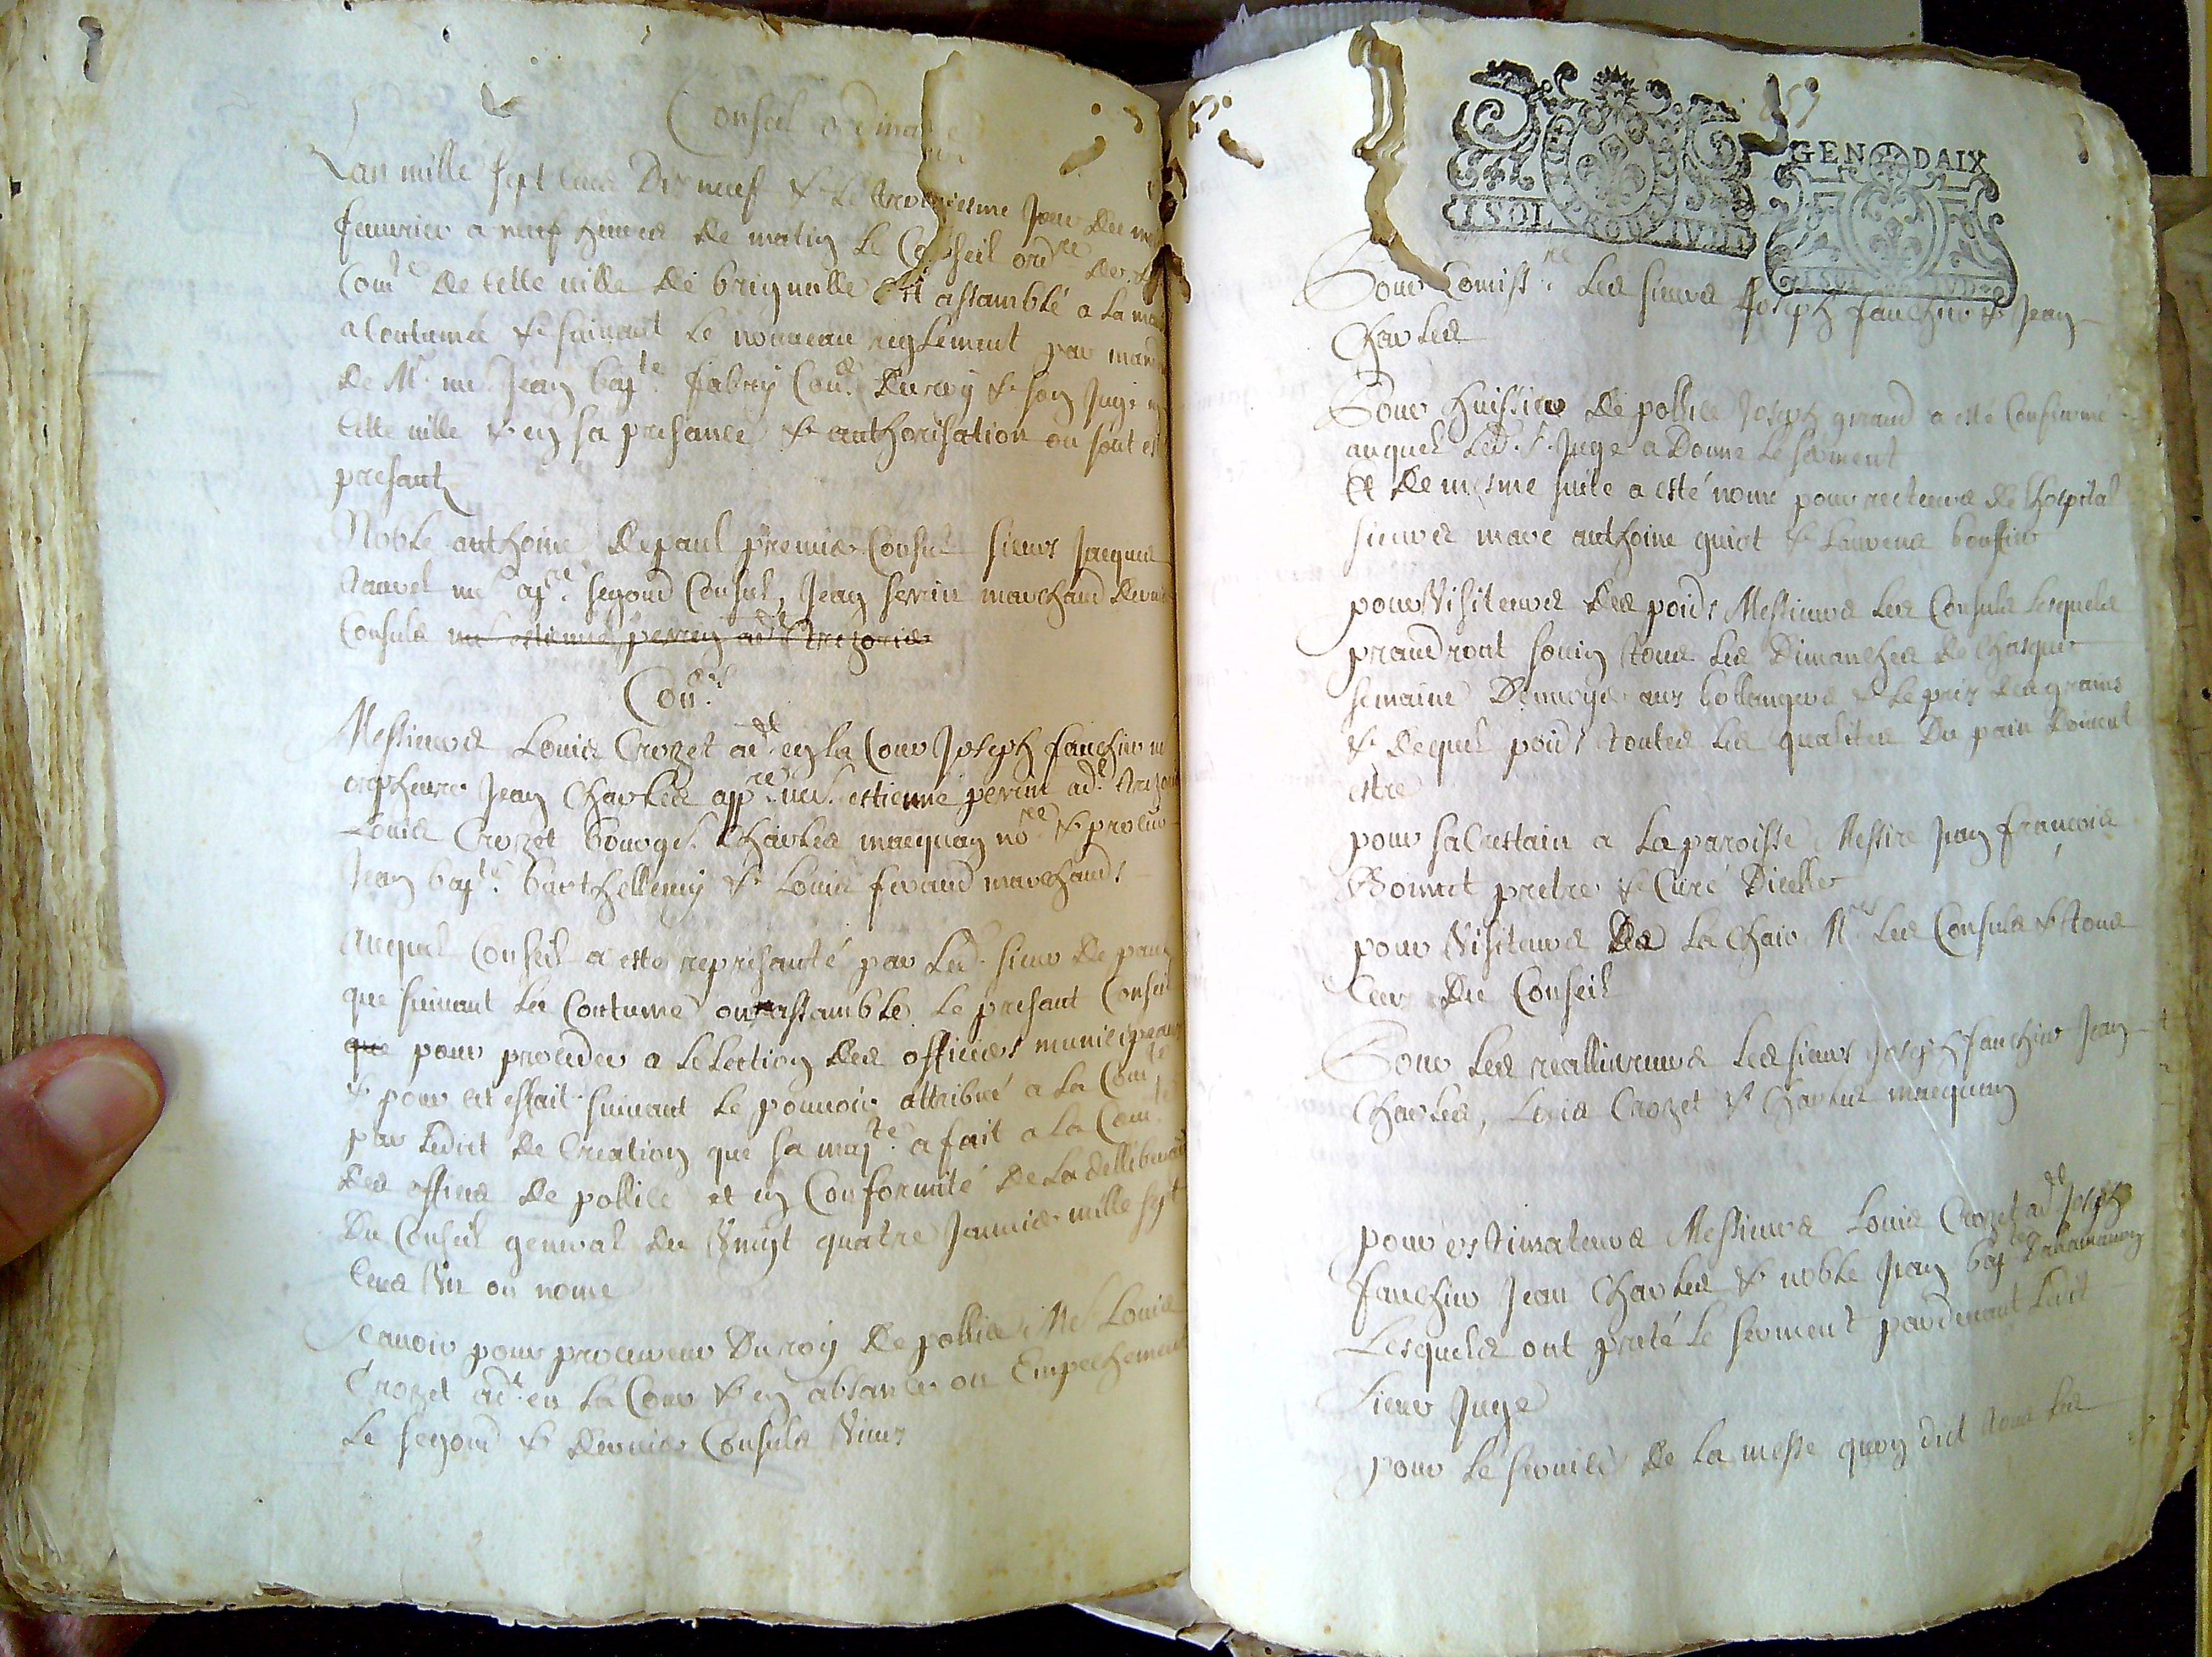 Conseil ordinaire
Lan mille sept cens dis neuf & le troisiesme jour du mois
feuvrier a neuf heures de matin le Conseil ordre de la
Comté de cette ville de brignolle est assamblé a la maniere
acoutumée & suivant le nouveau reglement par mande
de Mr me Jean bapte fabry Conr du roy & son Juge en
cette ville & en sa presance & authorisation ou sont esté
presantz
Noble anthoine de paul premier Consul sieurs Jacques
tauvel me segond Consul, Jean serrin marchand dernier
Consuls me estienne perrin adt & trezorier
Conrs
Messieurs Louis Crozet adt en la Cour Joseph fauchier me
orpheuvre Jean Charles appre me estienne perrin adt trezorier
Louis Crozet bourgs Charles macquan nore & procur
Jean bapte barthellemy & Louis feraud marchands
Auquel Conseil a esté represanté par led. sieur de paul
que suivant la Coutume on a assamblé le presant Conseil
que pour proceder a lelection des officiers municipeaux
& pour cet effait suivant le pouvoir attribué a la Comté
par ledict de Creation que sa majté a fait a la Comté
des offices de pollice et en Conformité de la delliberation
du Conseil general du vingt quatre Janvier mille sept
cens on nome
Scavoir pour procureur du roy de pollice Me Louis
Crozet adt en la Cour & en absance ou Empechement
le segond & dernier Consuls vieux
GEN DAIX
Pour Comissre les sieurs Joseph fauchier & Jean
Charles
Pour huissier de pollice Joseph giraud a esté Confirmé
auquel led. sr Juge a donné le serment
Et de mesme suite a esté nomé pour recteurs de lhospital
sieurs marc anthoine guiot & Laurens bouffier
pour Visiteurs des poids Messieurs les Consuls lesquels
prandront souin tous les Dimanches de chasque
semaine Denvoyer aux bollangers & le pris des grains
& dequel poids toutes les qualités du pain doivent
estre
pour sacrestain a la paroisse Messire Jean françois
Boinet pretre & Curé dicelle
pour Visiteurs de la chair Mrs les Consuls & tous
ceux du Conseil
Pour les reallivreurs les sieurs Joseph fauchier Jean
Charles, Louis Crozet & Charles macquan
pour estimateurs Messieurs Louis Crozet adt Joseph
fauchier Jean Charles & noble Jean bapte
Lesquels ont preté le serment pardevant ledit
sieur Juge
pour le service de la messe quon dict tous les